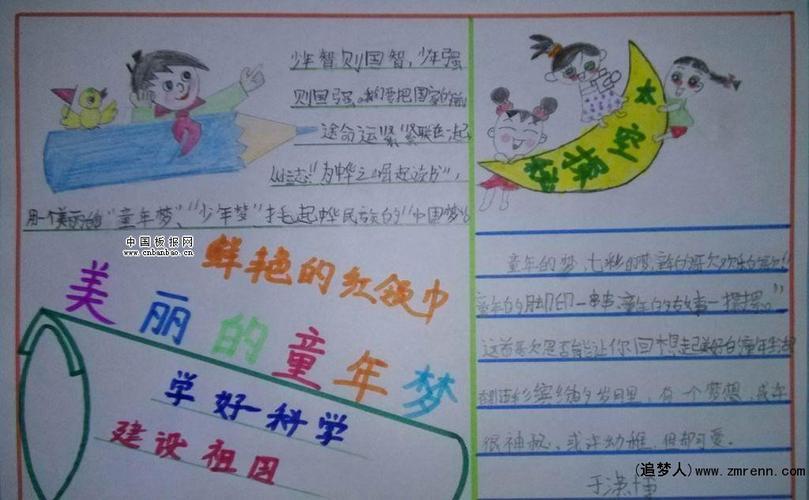 少年智则国智，少年强
则国强。我们要把国家的前
途命运紧紧联在一起，
立志“为中华之崛起读书”，
用一个美丽的“童年梦”、“少年梦”托起中华民族的“中国梦”。
中国板报网
www.cnbanbao.cn
鲜艳的红领巾
美丽的童年梦
学好科学
建设祖国
太空探秘
童年的梦，七彩的梦，童年的歌欢乐的歌，
童年的脚印一串串，童年的故事一摞摞。”
这首歌次是否能让你回想起美好的童年生活
缤纷岁月里，有一个梦想，或许
很神秘、或许幼稚，但却可爱。
(追梦人)www.zmrenn.com